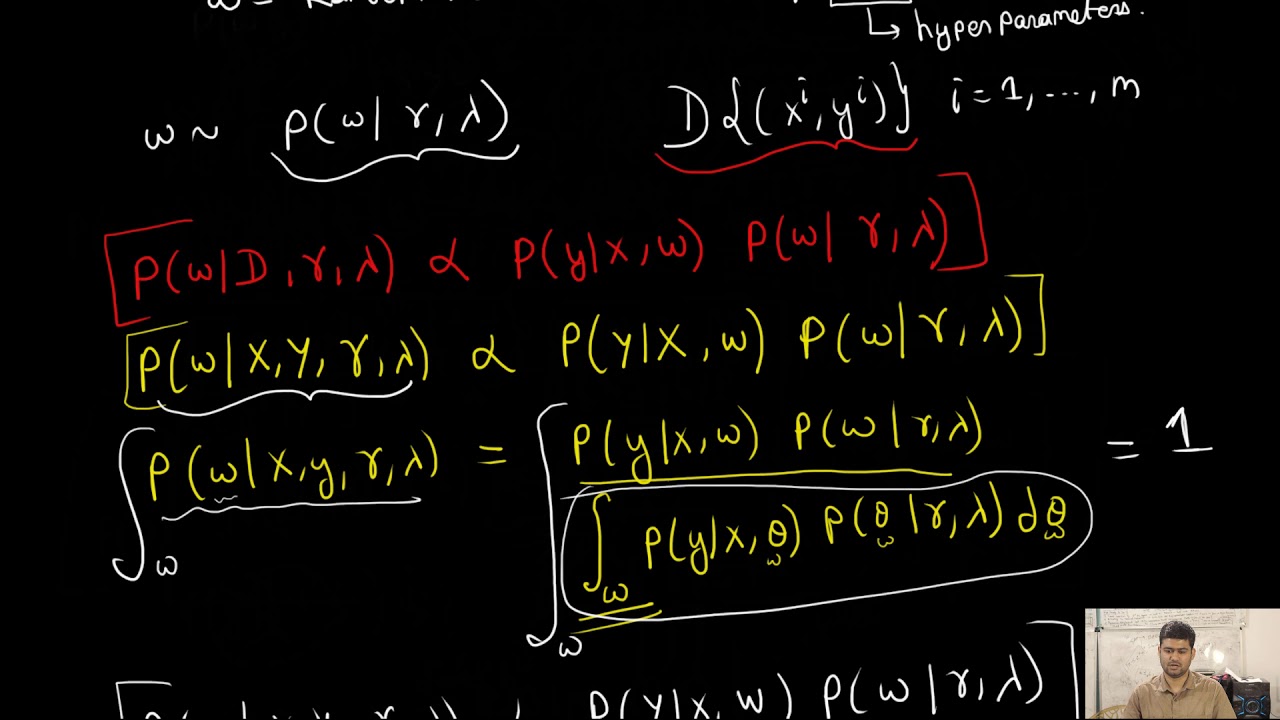 ω =
↳ hyper parameters.
ω ~ p(ω| γ, λ)   D{(xⁱ, yⁱ)}   i = 1, ..., m
[P(ω|D, γ, λ) ∝ P(y|x, ω) P(ω| γ, λ)]
[P(ω| X, Y, γ, λ) ∝ P(Y|X, ω) P(ω| γ, λ)]
∫_ω P(ω|x, y, γ, λ) = ∫_ω P(y|x, ω) P(ω| γ, λ) / ∫_ω P(y|x, θ) P(θ| γ, λ) dθ = 1
ω ω ω
P(Y|X, W) P(ω| γ, λ)]